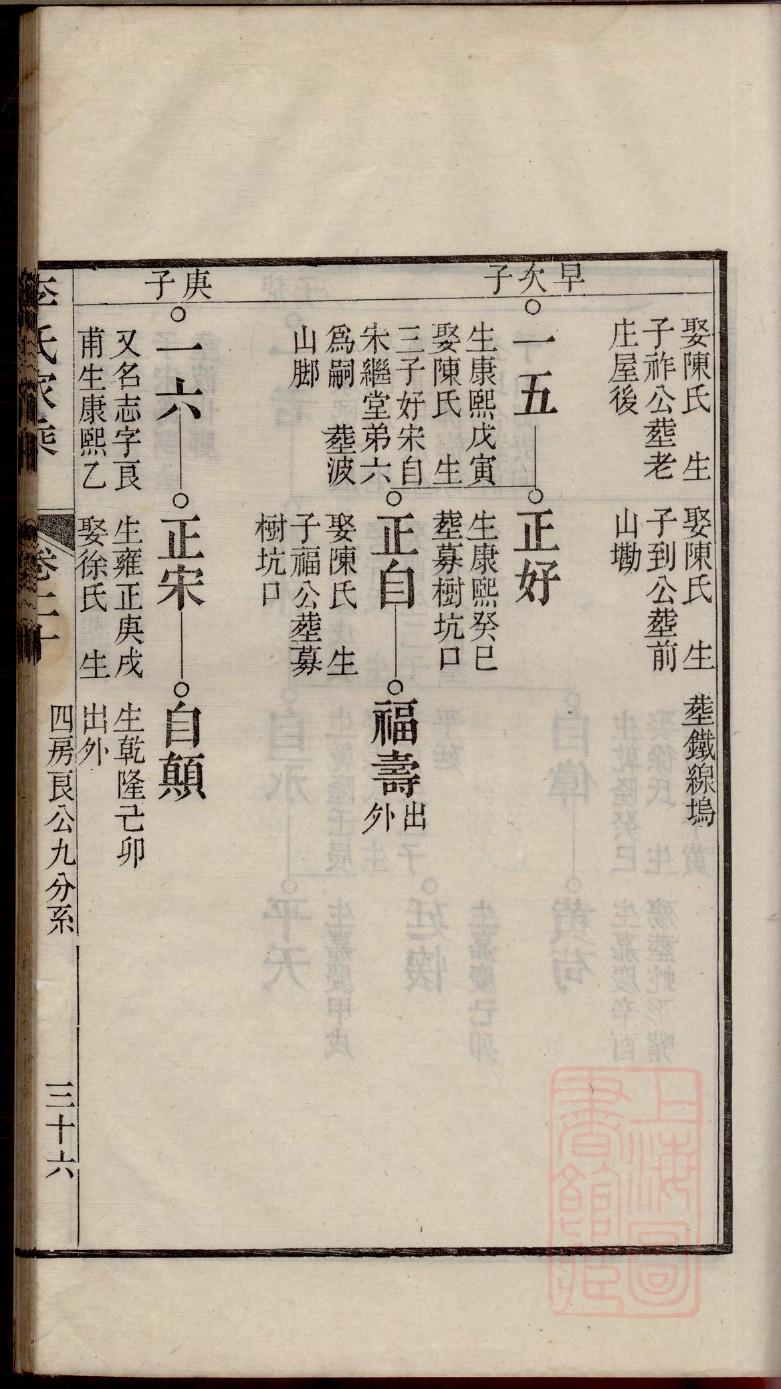 娶陳氏　生
子祚公塟老
庄屋後
娶陳氏　生
子到公塟前
山墈
塟鐵線塢
早次子
一五
生康熙戊寅
娶陳氏　生
三子好宋自
宋繼堂弟六
爲嗣　塟波
山脚
正好
生康熙癸巳
塟募樹坑口
正自
娶陳氏　生
子福公塟募
樹坑口
福壽
出外
庚子
一六
又名志字良
甫生康熙乙
正宋
生雍正庚戌
娶徐氏　生
自顛
生乾隆己卯
出外
李氏家乘
卷二十
四房良公九分系
三十六
上海圖書館藏